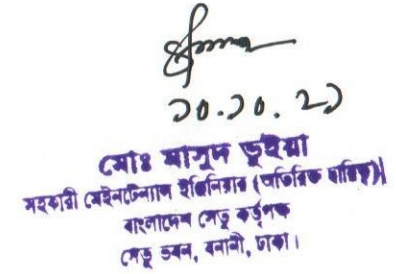 ১০.১০.২১
মোঃ মাসুদ ভূইয়া
সহকারী মেইনটেন্যান্স ইঞ্জিনিয়ার (অতিরিক্ত দায়িত্ব)
বাংলাদেশ সেতু কর্তৃপক্ষ
সেতু ভবন, বনানী, ঢাকা।